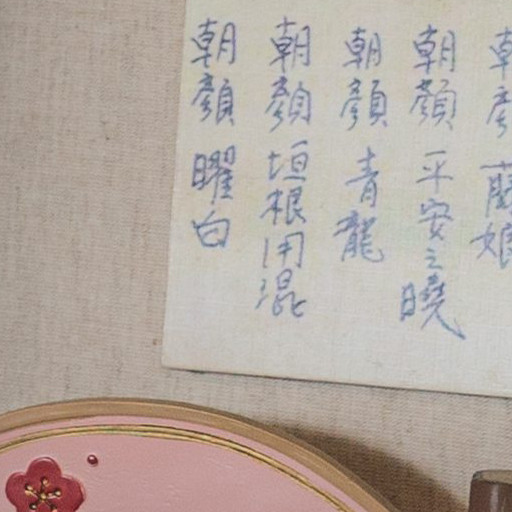 朝顔 藤娘
朝顔 平安之曉
朝顔 青龍
朝顔 垣根用混
朝顔 曜白